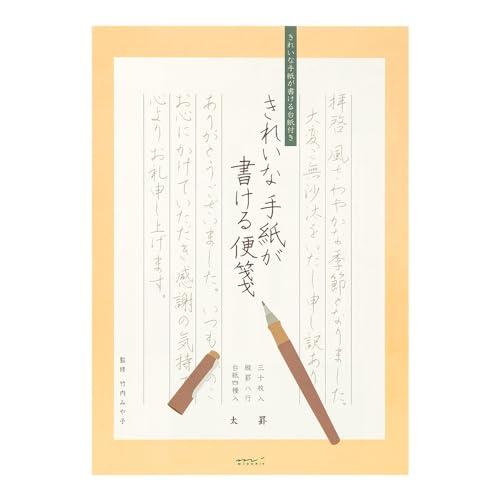 きれいな手紙が書ける台紙付き
拝啓 風さわやかな季節となりました。
大変ご無沙汰をいたし申し訳あり
きれいな手紙が
書ける便箋
ありがとうございました。いつも
お心にかけていただき感謝の気持
心よりお礼申し上げます。
三十枚入
縦罫八行
台紙四種入
太 罫
監修 竹内みや子
MIDORI